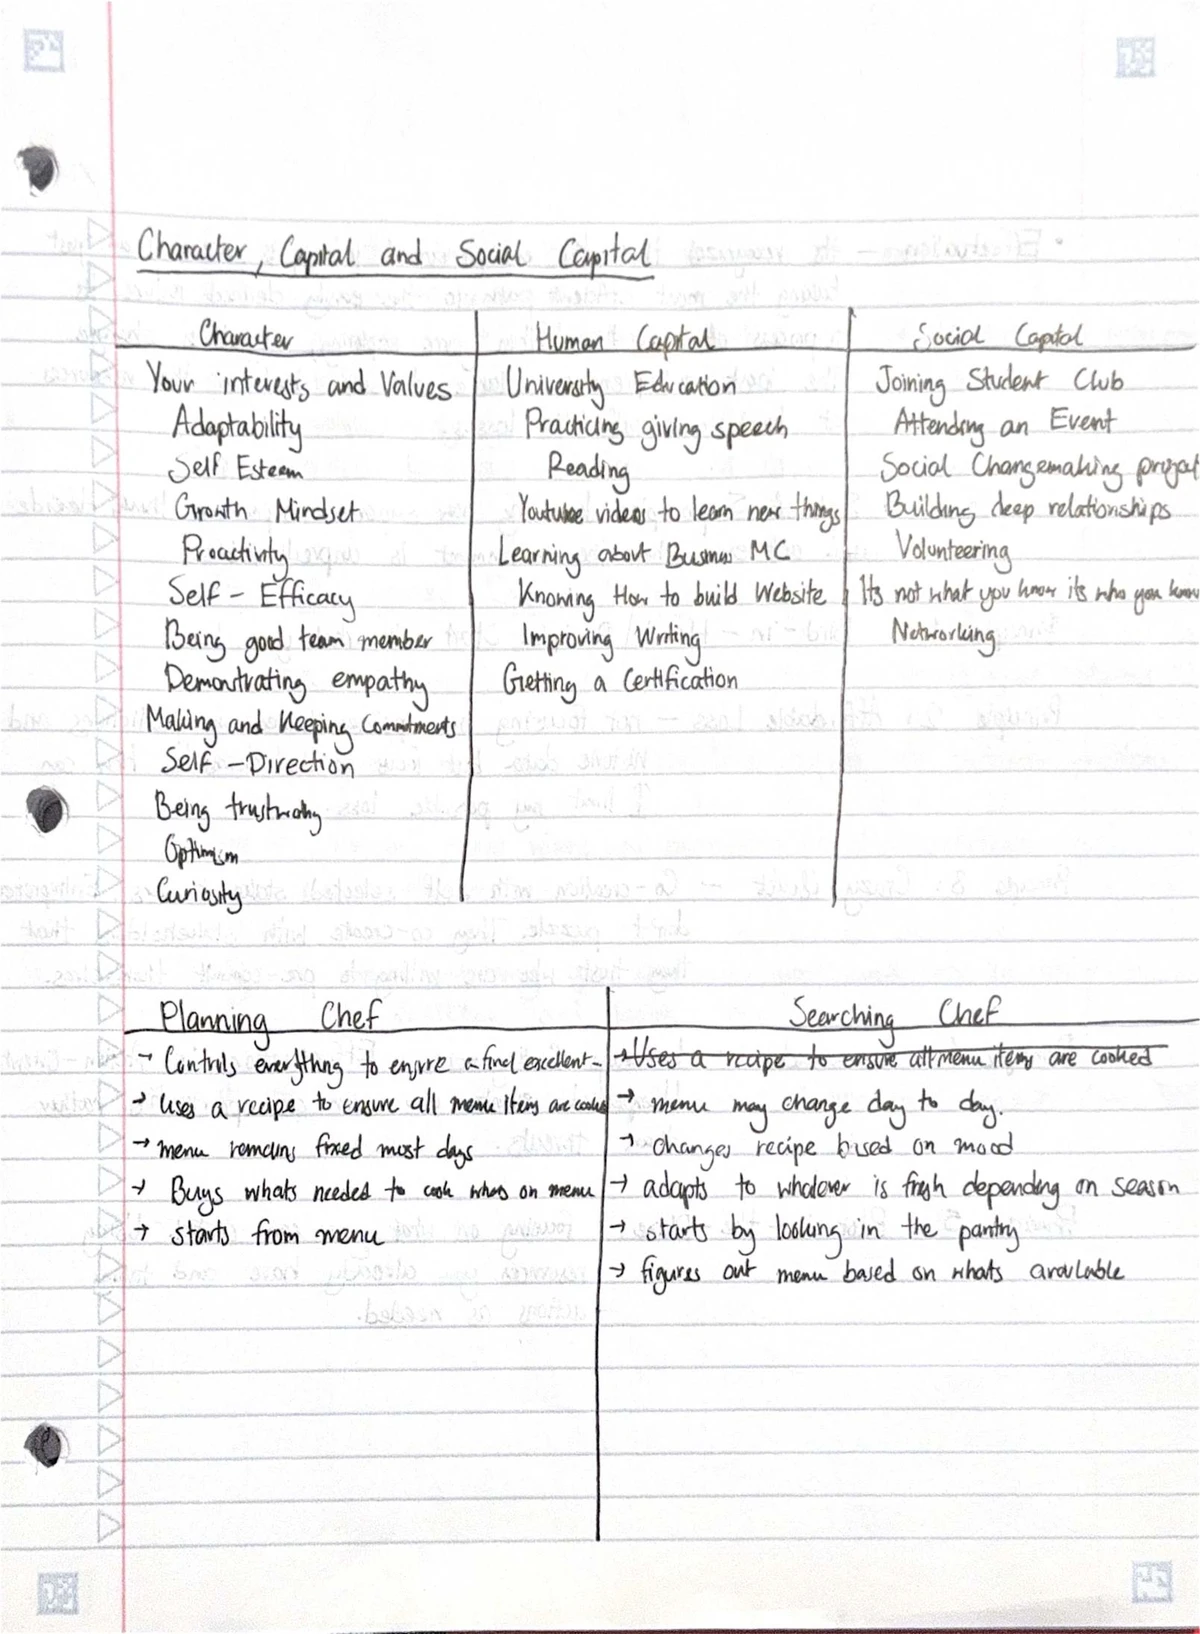 Character, Capital and Social Capital
Character Human Capital Social Capital
Your interests and Values University Education Joining Student Club
Adaptability Practicing giving speech Attending an Event
Self Esteem Reading Social Changemaking project
Growth Mindset Youtube videos to learn new things Building deep relationships
Proactivity Learning about Business MC Volunteering
Self - Efficacy Knowing How to build Website Its not what you know its who you know
Being good team member Improving Writing Networking
Demonstrating empathy Getting a Certification
Making and Keeping Commitments
Self - Direction
Being trustworthy
Optimism
Curiosity
Planning Chef Searching Chef
→ Controls everything to ensure a final excellent - → Uses a recipe to ensure all menu items are cooked
→ Uses a recipe to ensure all menu items are cooked → menu may change day to day.
→ menu remains fixed most days → changes recipe based on mood
→ Buys whats needed to cook whats on menu → adapts to whatever is fresh depending on season
→ starts from menu → starts by looking in the pantry
→ figures out menu based on whats available